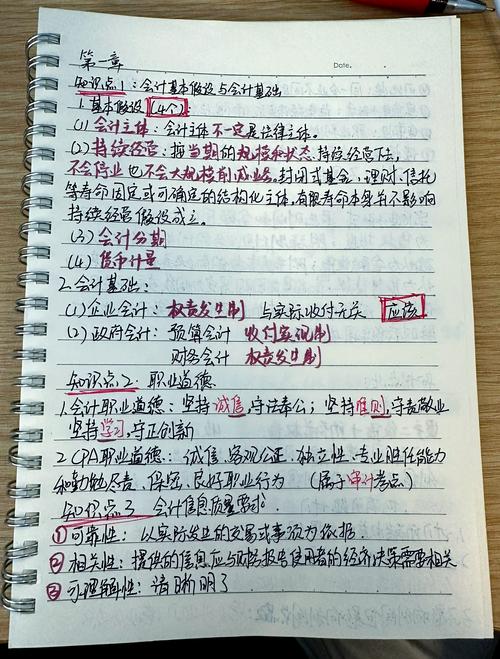 第一章
Date.
知识点1：会计基本假设与会计基础
1.基本假设（4个）
(1)会计主体：会计主体不一定是法律主体。
(2)持续经营：按当期的规模和状态持续经营下去，
不会停业也不会大规模削减业务。封闭式基金、理财、信托
等寿命固定或可确定的结构化主体，有限寿命本身并不影响
持续经营假设成立。
(3)会计分期
(4)货币计量
2.会计基础：
(1)企业会计：权责发生制 与实际收付无关 应该
(2)政府会计：预算会计 收付实现制
财务会计 权责发生制
知识点2 职业道德
1.会计职业道德：坚持诚信,守法奉公；坚持准则,守责敬业
坚持学习,守正创新
2.CPA职业道德：诚信、客观公正、独立性、专业胜任能力
和勤勉尽责、保密、良好职业行为 （属于审计考点）
知识点3 会计信息质量要求
①可靠性：以实际发生的交易或事项为依据.
②相关性：提供的信息应与财务报告使用者的经济决策需要相关
③可理解性：清晰明了